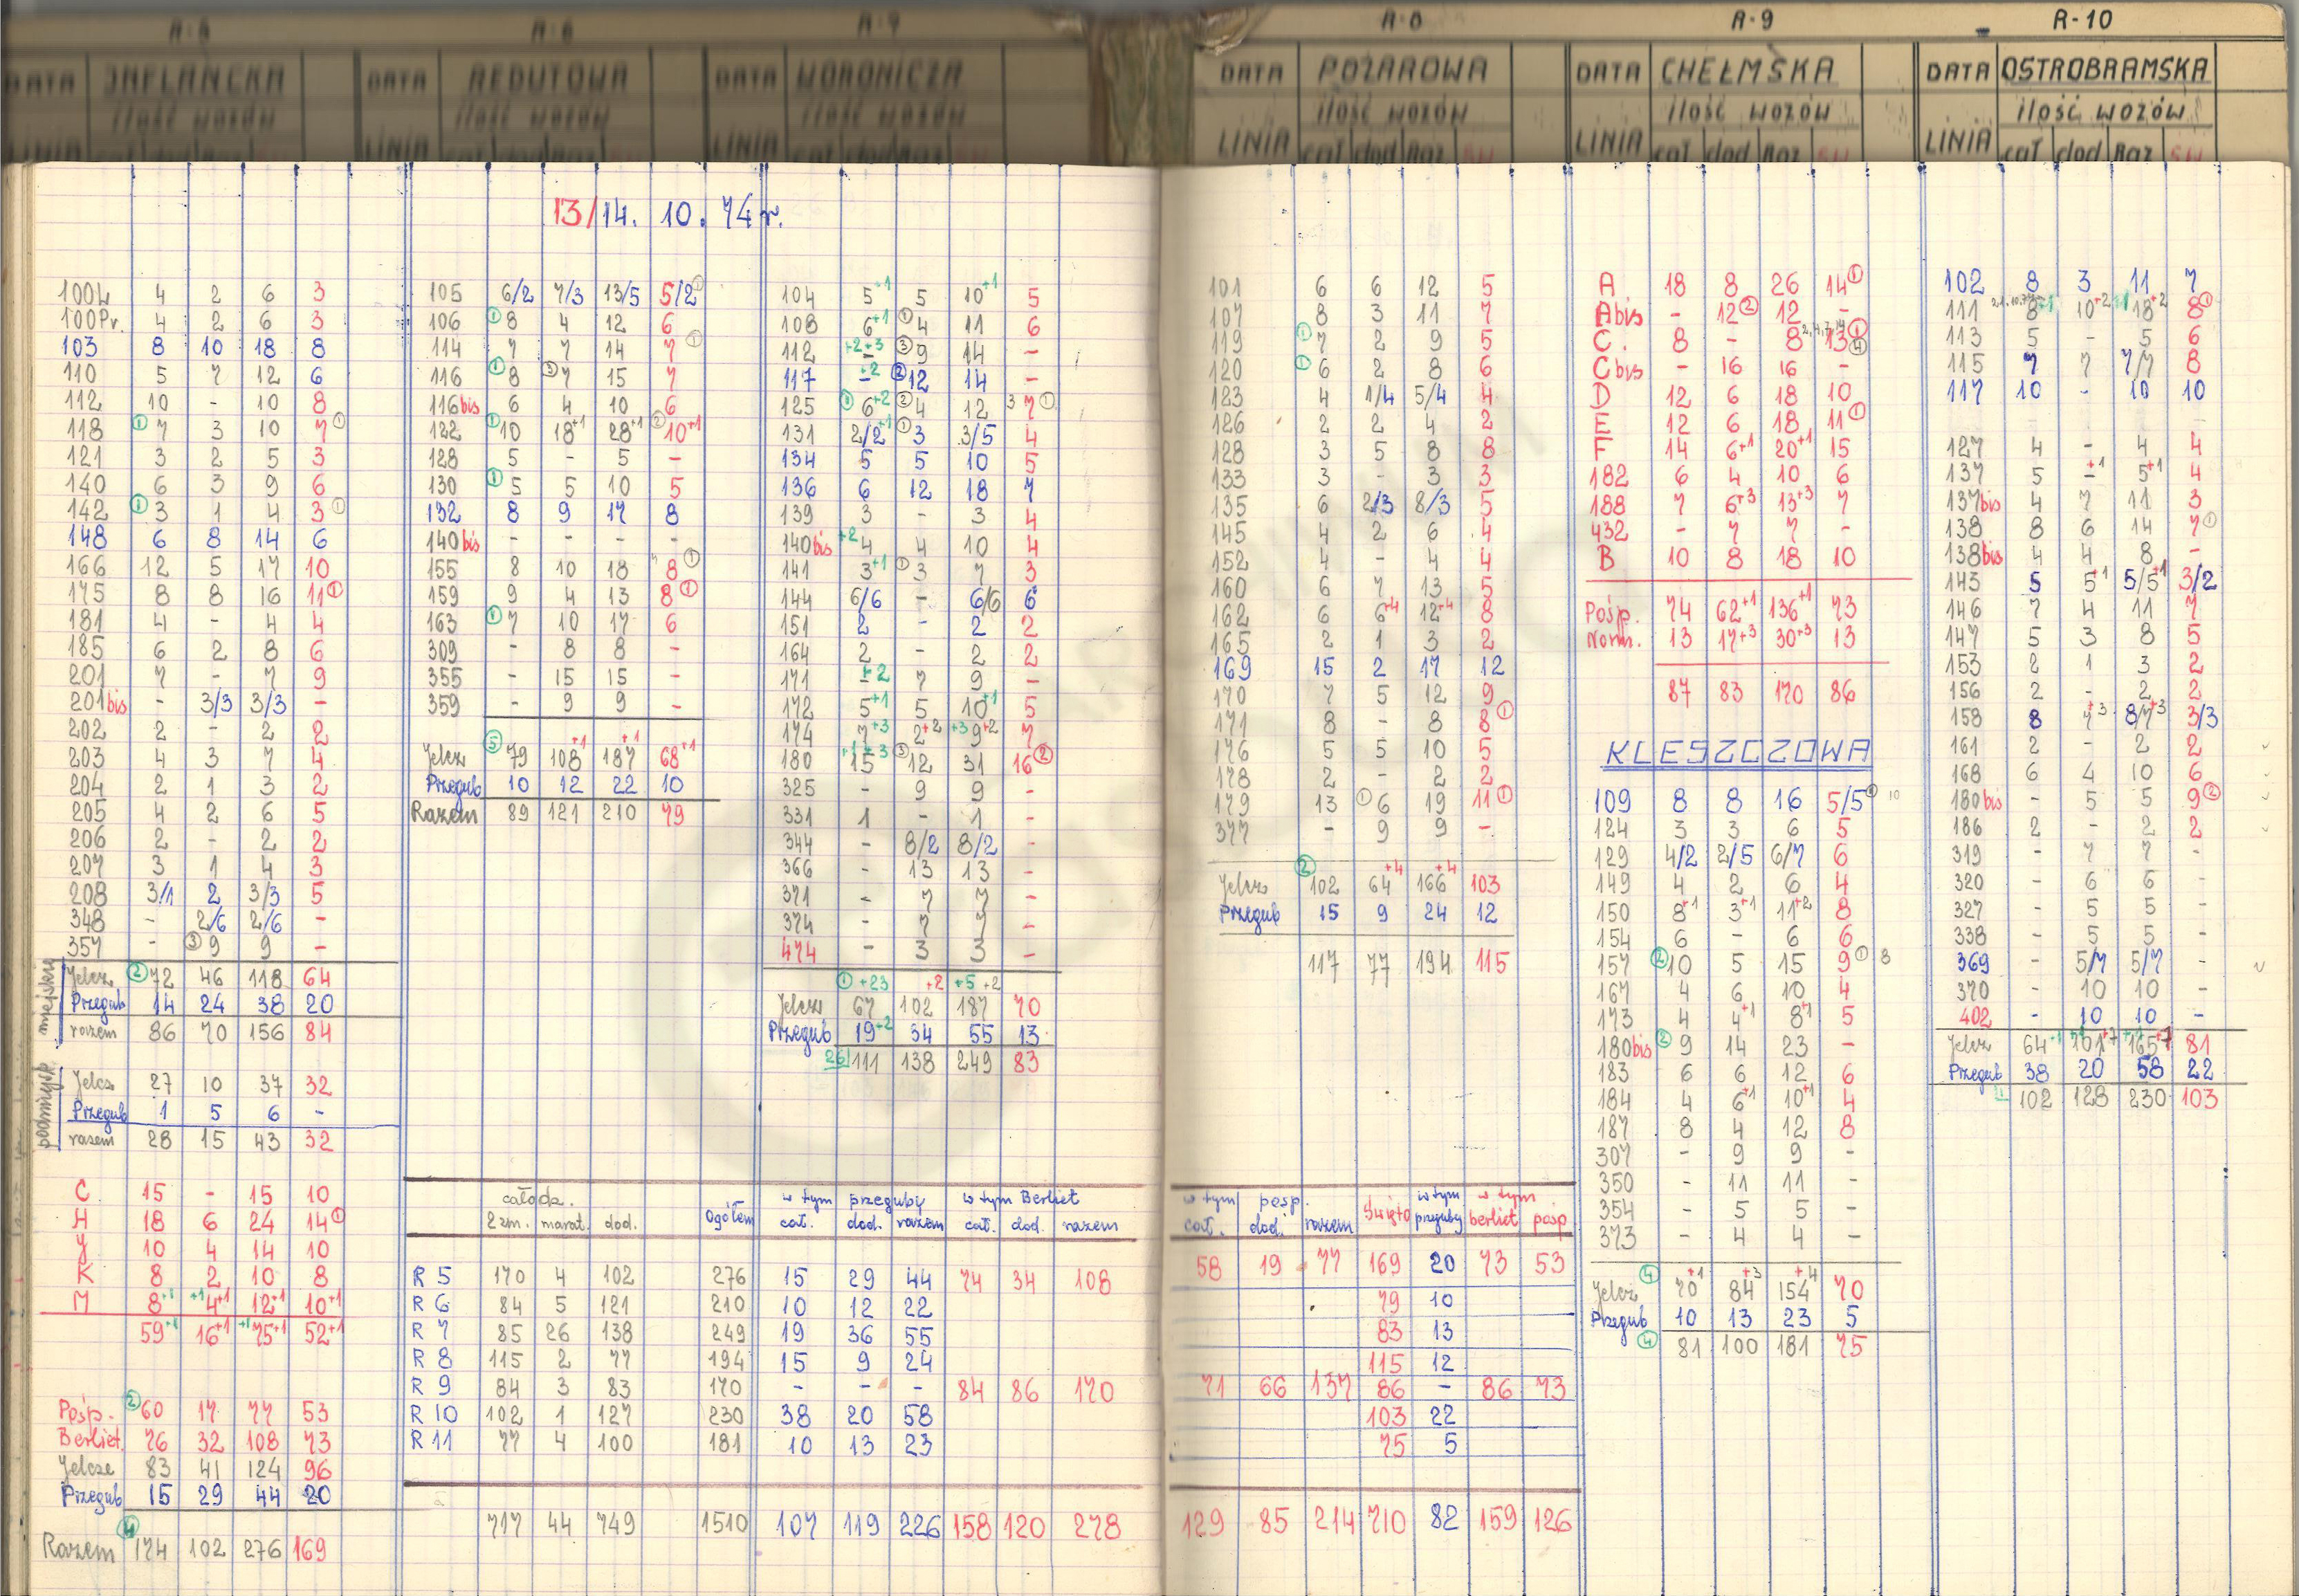 R-5 R-6 R-7 R-8 R-9 R-10
DATA INFLANCKA DATA REDUTOWA DATA WORONICZA DATA POŻAROWA DATA CHEŁMSKA DATA OSTROBRAMSKA
ilość wozów ilość wozów ilość wozów ilość wozów ilość wozów ilość wozów
LINIA LINIA LINIA LINIA cał dod Raz LINIA cał dod Raz św LINIA cał dod Raz św
13/14. 10. 74 r.
100Ł 4 2 6 3
100Pr. 4 2 6 3
103 8 10 18 8
110 5 7 12 6
112 10 - 10 8
118 ① 7 3 10 7 ①
121 3 2 5 3
140 6 3 9 6
142 ① 3 1 4 3 ①
148 6 8 14 6
166 12 5 17 10
175 8 8 16 11 ①
181 4 - 4 4
185 6 2 8 6
201 7 - 7 9
201bis - 3/3 3/3 -
202 2 - 2 2
203 4 3 7 4
204 2 1 3 2
205 4 2 6 5
206 2 - 2 2
207 3 1 4 3
208 3/1 2 3/3 5
348 - 2/6 2/6 -
357 - ③ 9 9 -
miejskie
Jelcz ② 72 46 118 64
Przegub 14 24 38 20
razem 86 70 156 84
podmiejsk
Jelcz 27 10 37 32
Przegub 1 5 6 -
razem 28 15 43 32
C 15 - 15 10
H 18 6 24 14 ①
J 10 4 14 10
K 8 2 10 8
M 8+1 +1 4+1 12+1 10+1
59+1 16+1 +1 75+1 52+1
Pośp. ② 60 17 77 53
Berliet 76 32 108 73
Jelcze 83 41 124 96
Przegub 15 29 44 20
Razem ④ 174 102 276 169
105 6/2 7/3 13/5 5/2 ①
106 ① 8 4 12 6
114 7 7 14 7 ①
116 ① 8 ③ 7 15 7
116bis 6 4 10 6
122 ① 10 18+1 28+1 ② 10+1
128 5 - 5 -
130 ① 5 5 10 5
132 8 9 17 8
140bis - - - -
155 8 10 18 8 ①
159 9 4 13 8 ①
163 ① 7 10 17 6
309 - 8 8 -
355 - 15 15 -
359 - 9 9 -
Jelcz ⑤ 79 108+1 187+1 68+1
Przegub 10 12 22 10
Razem 89 121 210 79
104 5+1 5 10+1 5
108 6+1 ① 4 11 6
112 +2+3 - ③ 9 14 -
117 +2 - ② 12 14 -
125 ① 6+2 ② 4 12 3 7 ①
131 2/2+1 ① 3 3/5 4
134 5 5 10 5
136 6 12 18 7
139 3 - 3 4
140bis +2 4 4 10 4
141 3+1 ① 3 7 3
144 6/6 - 6/6 6
151 2 - 2 2
164 2 - 2 2
171 +2 - 7 9 -
172 5+1 5 10+1 5
174 7+3 2+2 +3 9+2 7
180 +1+3 15 ③ 12 31 16 ②
325 - 9 9 -
331 1 - 1 -
344 - 8/2 8/2 -
366 - 13 13 -
371 - 7 7 -
374 - 7 7 -
474 - 3 3 -
① +23 +2 +5 +2
Jelcz 67 102 187 70
Przegub 19+2 34 55 13
26 111 138 249 83
całodz. w tym przeguby w tym Berliet
2 zm. marat. dod. Ogółem cał. dod. razem cał. dod. razem
R 5 170 4 102 276 15 29 44 74 34 108
R 6 84 5 121 210 10 12 22
R 7 85 26 138 249 19 36 55
R 8 115 2 77 194 15 9 24
R 9 84 3 83 170 - - - 84 86 170
R 10 102 1 127 230 38 20 58
R 11 77 4 100 181 10 13 23
717 44 749 1510 107 119 226 158 120 278
101 6 6 12 5
107 8 3 11 7
119 ① 7 2 9 5
120 ① 6 2 8 6
123 4 1/4 5/4 4
126 2 2 4 2
128 3 5 8 8
133 3 - 3 3
135 6 2/3 8/3 5
145 4 2 6 4
152 4 - 4 4
160 6 7 13 5
162 6 6+4 12+4 8
165 2 1 3 2
169 15 2 17 12
170 7 5 12 9
171 8 - 8 8 ①
176 5 5 10 5
178 2 - 2 2
179 13 ① 6 19 11 ①
377 - 9 9 -
Jelcz ② 102 64+4 166+4 103
Przegub 15 9 24 12
117 77 194 115
w tym pośp. święto w tym przeguby w tym
cał. dod. razem berliet pośp
58 19 77 169 20 73 53
79 10
83 13
115 12
71 66 137 86 - 86 73
103 22
75 5
129 85 214 710 82 159 126
A 18 8 26 14 ①
A bis - 12 ② 12 -
C. 8 - 8 13 ① ④
C bis - 16 16 -
D 12 6 18 10
E 12 6 18 11 ①
F 14 6+1 20+1 15
182 6 4 10 6
188 7 6+3 13+3 7
432 - 7 7 -
B 10 8 18 10
Pośp. 74 62+1 136+1 73
norm. 13 17+3 30+3 13
87 83 170 86
KLESZCZOWA
109 8 8 16 5/5 ① 10
124 3 3 6 5
129 4/2 2/5 6/7 6
149 4 2 6 4
150 8+1 3+1 11+2 8
154 6 - 6 6
157 ② 10 5 15 9 ① 8
167 4 6 10 4
173 4 4+1 8+1 5
180bis ② 9 14 23 -
183 6 6 12 6
184 4 6+1 10+1 4
187 8 4 12 8
307 - 9 9 -
350 - 11 11 -
354 - 5 5 -
373 - 4 4 -
Jelcz ④ 70+1 84+3 154+4 70
Przegub 10 13 23 5
④ 81 100 181 75
102 8 3 11 7
111 8+1 10+2 +1 18+2 8 ①
113 5 - 5 6
115 7 7 7/7 8
117 10 - 10 10
127 4 - 4 4
137 5 -+1 5+1 4
137bis 4 7 11 3
138 8 6 14 7 ①
138bis 4 4 8 -
143 5 5+1 5/5+1 3/2
146 7 4 11 7
147 5 3 8 5
153 2 1 3 2
156 2 - 2 2
158 8 7+3 8/7+3 3/3
161 2 - 2 2
168 6 4 10 6
180bis - 5 5 9 ②
186 2 - 2 2
319 - 7 7 -
320 - 6 6 -
327 - 5 5 -
338 - 5 5 -
369 - 5/7 5/7 -
370 - 10 10 -
402 - 10 10 -
Jelcz 64+1 101+7 165+7 81
Przegub 38 20 58 22
1 102 128 230 103